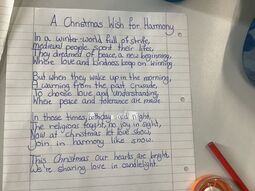 A Christmas Wish for Harmony
In a winter world full of strife,
Medieval people spent their lives,
They dreamed of peace, a new beginning,
Where love and kindness keep on winning
But when they wake up in the morning,
A warning from the past crusade,
To choose love and understanding,
Where peace and tolerance are made
In those times, without night,
The religions fought, no joy in sight,
Now at christmas let love show,
Join in harmony like snow.
This Christmas our hearts are bright,
We're sharing love in candlelight.